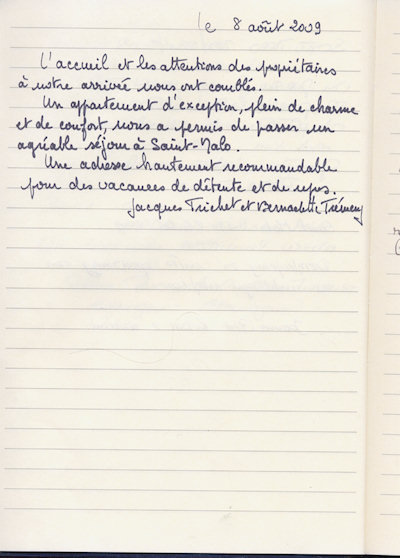 le 8 août 2009
L'accueil et les attentions des propriétaires
à notre arrivée nous ont comblés.
Un appartement d'exception, plein de charme
et de confort, nous a permis de passer un
agréable séjour à Saint-Malo.
Une adresse hautement recommandable
pour des vacances de détente et de repos.
Jacques Trichet et Bernadette Trémeny